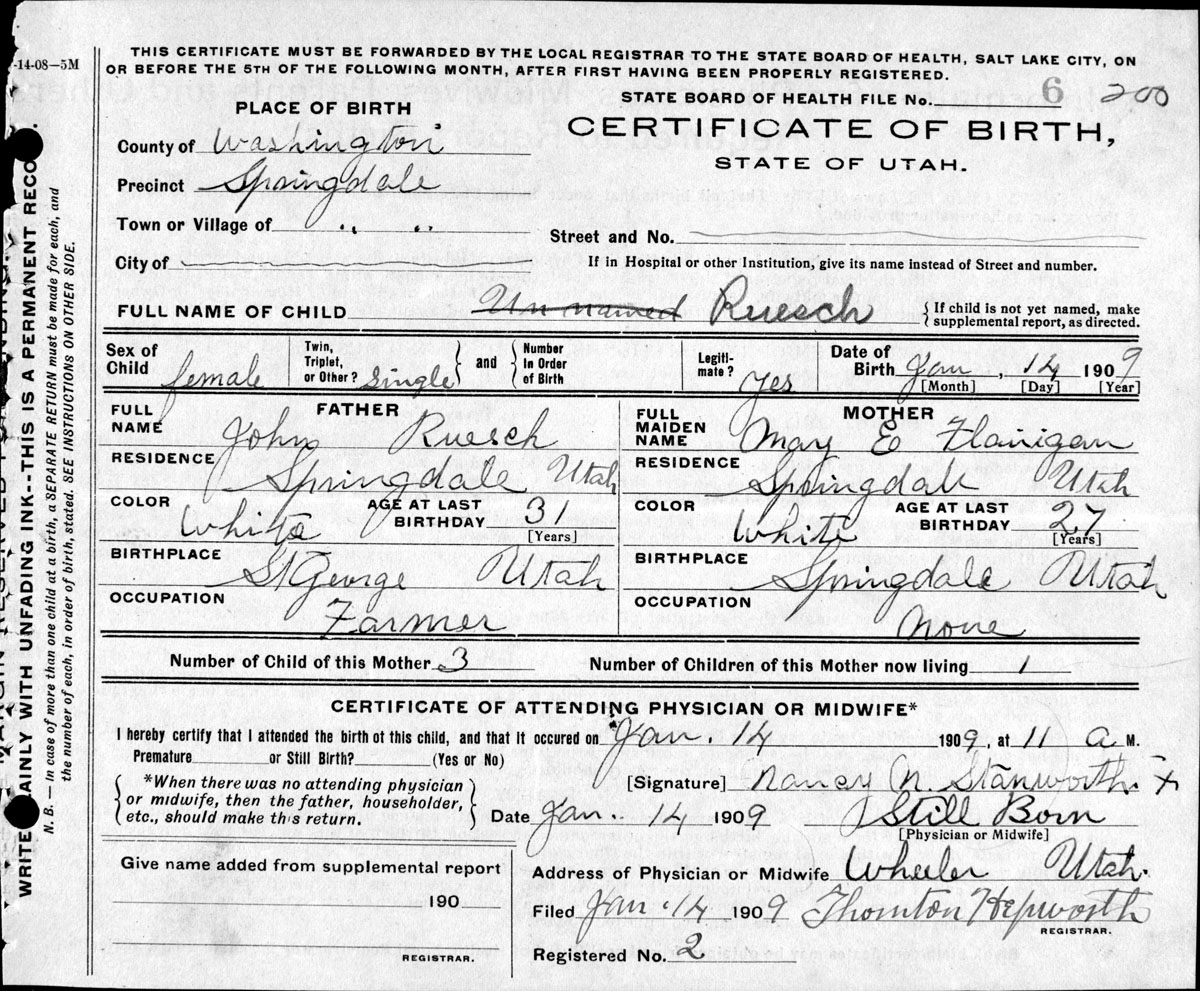 -14-08—5M
THIS CERTIFICATE MUST BE FORWARDED BY THE LOCAL REGISTRAR TO THE STATE BOARD OF HEALTH, SALT LAKE CITY, ON
OR BEFORE THE 5TH OF THE FOLLOWING MONTH, AFTER FIRST HAVING BEEN PROPERLY REGISTERED.
STATE BOARD OF HEALTH FILE No. 6 200
PLACE OF BIRTH
CERTIFICATE OF BIRTH,
STATE OF UTAH.
County of Washington
Precinct Springdale
Town or Village of " "
Street and No.
City of
If in Hospital or other Institution, give its name instead of Street and number.
FULL NAME OF CHILD Un named Ruesch {If child is not yet named, make
supplemental report, as directed.
Sex of Child female
Twin, Triplet, or Other? single } and { Number in Order of Birth
Legitimate? Yes
Date of Birth Jan, 14 1909
[Month] [Day] [Year]
FATHER
FULL NAME John Ruesch
RESIDENCE Springdale Utah
COLOR White AGE AT LAST BIRTHDAY 31 [Years]
BIRTHPLACE St George Utah
OCCUPATION Farmer
MOTHER
FULL MAIDEN NAME Mary E Flanigan
RESIDENCE Springdale Utah
COLOR White AGE AT LAST BIRTHDAY 27 [Years]
BIRTHPLACE Springdale Utah
OCCUPATION None
Number of Child of this Mother 3 Number of Children of this Mother now living 1
CERTIFICATE OF ATTENDING PHYSICIAN OR MIDWIFE*
I hereby certify that I attended the birth of this child, and that it occured on Jan. 14 1909, at 11 a M.
Premature? or Still Birth? (Yes or No)
*When there was no attending physician
or midwife, then the father, householder,
etc., should make this return.
[Signature] Nancy N. Stanworth x
Date Jan. 14 1909 Still Born
[Physician or Midwife]
Give name added from supplemental report
190
REGISTRAR.
Address of Physician or Midwife Wheeler Utah.
Filed Jan. 14 1909 Thornton Hepworth
REGISTRAR.
Registered No. 2
WRITE PLAINLY WITH UNFADING INK--THIS IS A PERMANENT RECO
N. B. — In case of more than one child at a birth, a SEPARATE RETURN must be made for each, and
the number of each, in order of birth, stated. SEE INSTRUCTIONS ON OTHER SIDE.